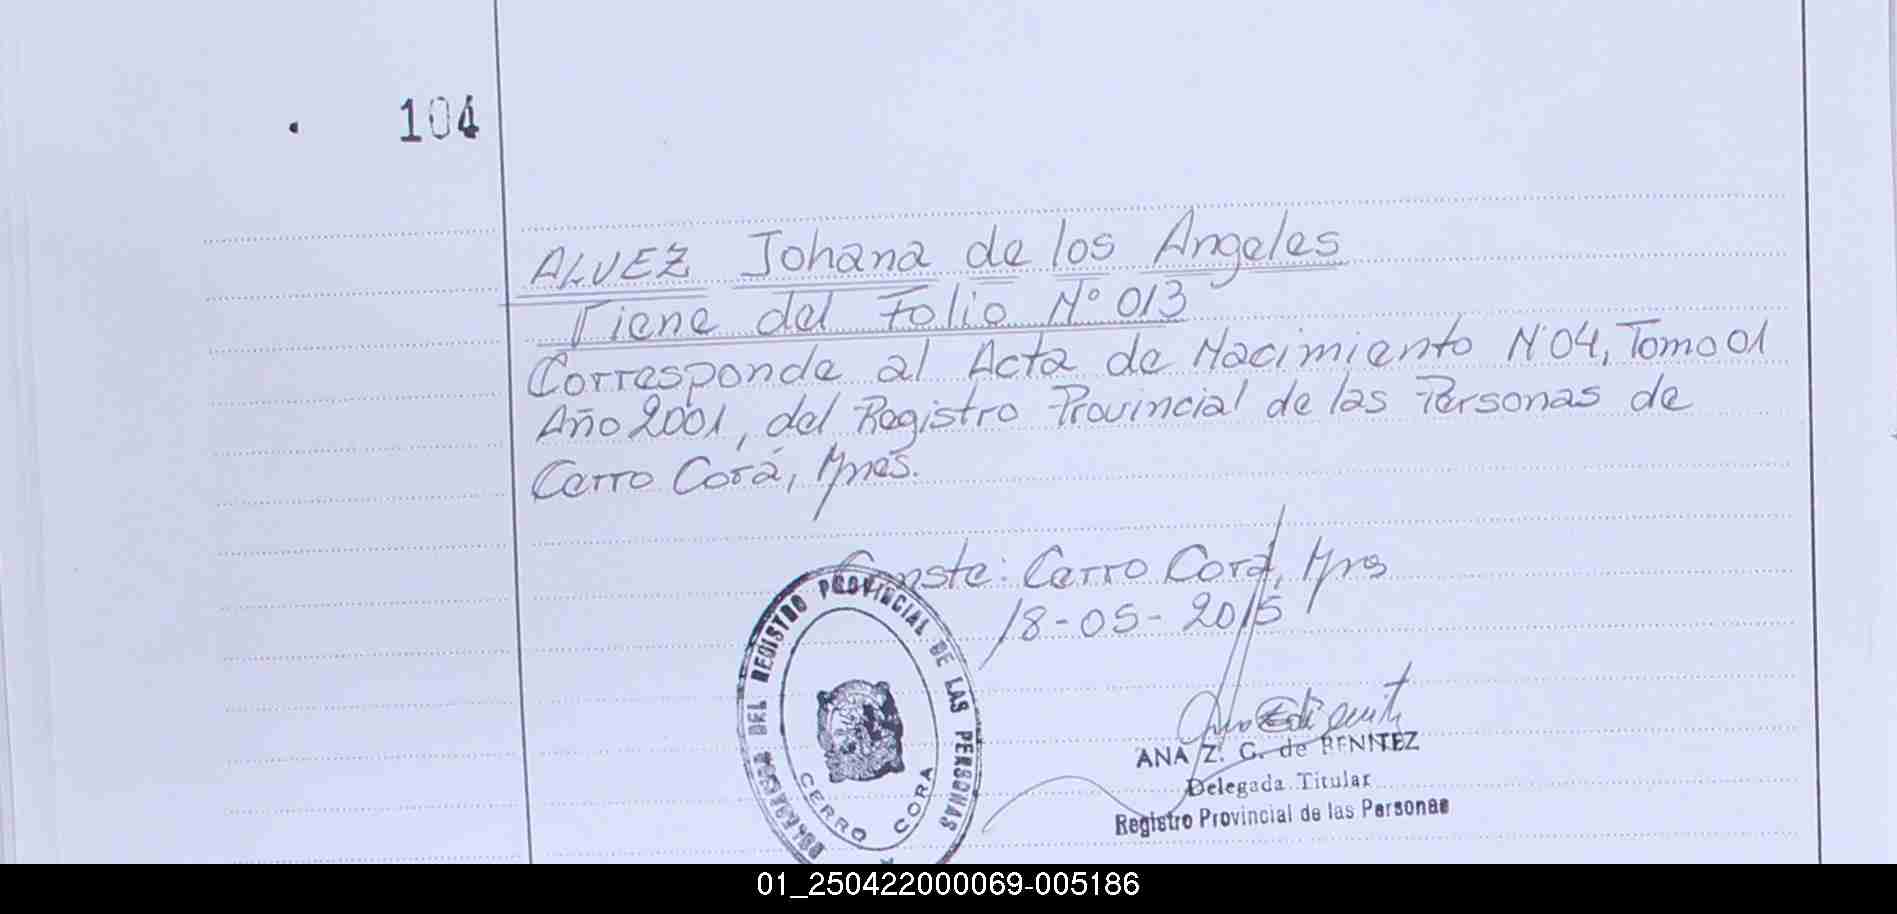 104
ALVEZ Johana de los Angeles
Viene del Folio Nº 013
Corresponde al Acta de Nacimiento Nº 04, Tomo 01
Año 2001, del Registro Provincial de las Personas de
Cerro Corá, Mnes.
Conste: Cerro Corá, Mnes
18-05-2015
DEL REGISTRO PROVINCIAL DE LAS PERSONAS
CERRO CORA
ANA Z. G. de BENITEZ
Delegada Titular
Registro Provincial de las Personas
01_250422000069-005186